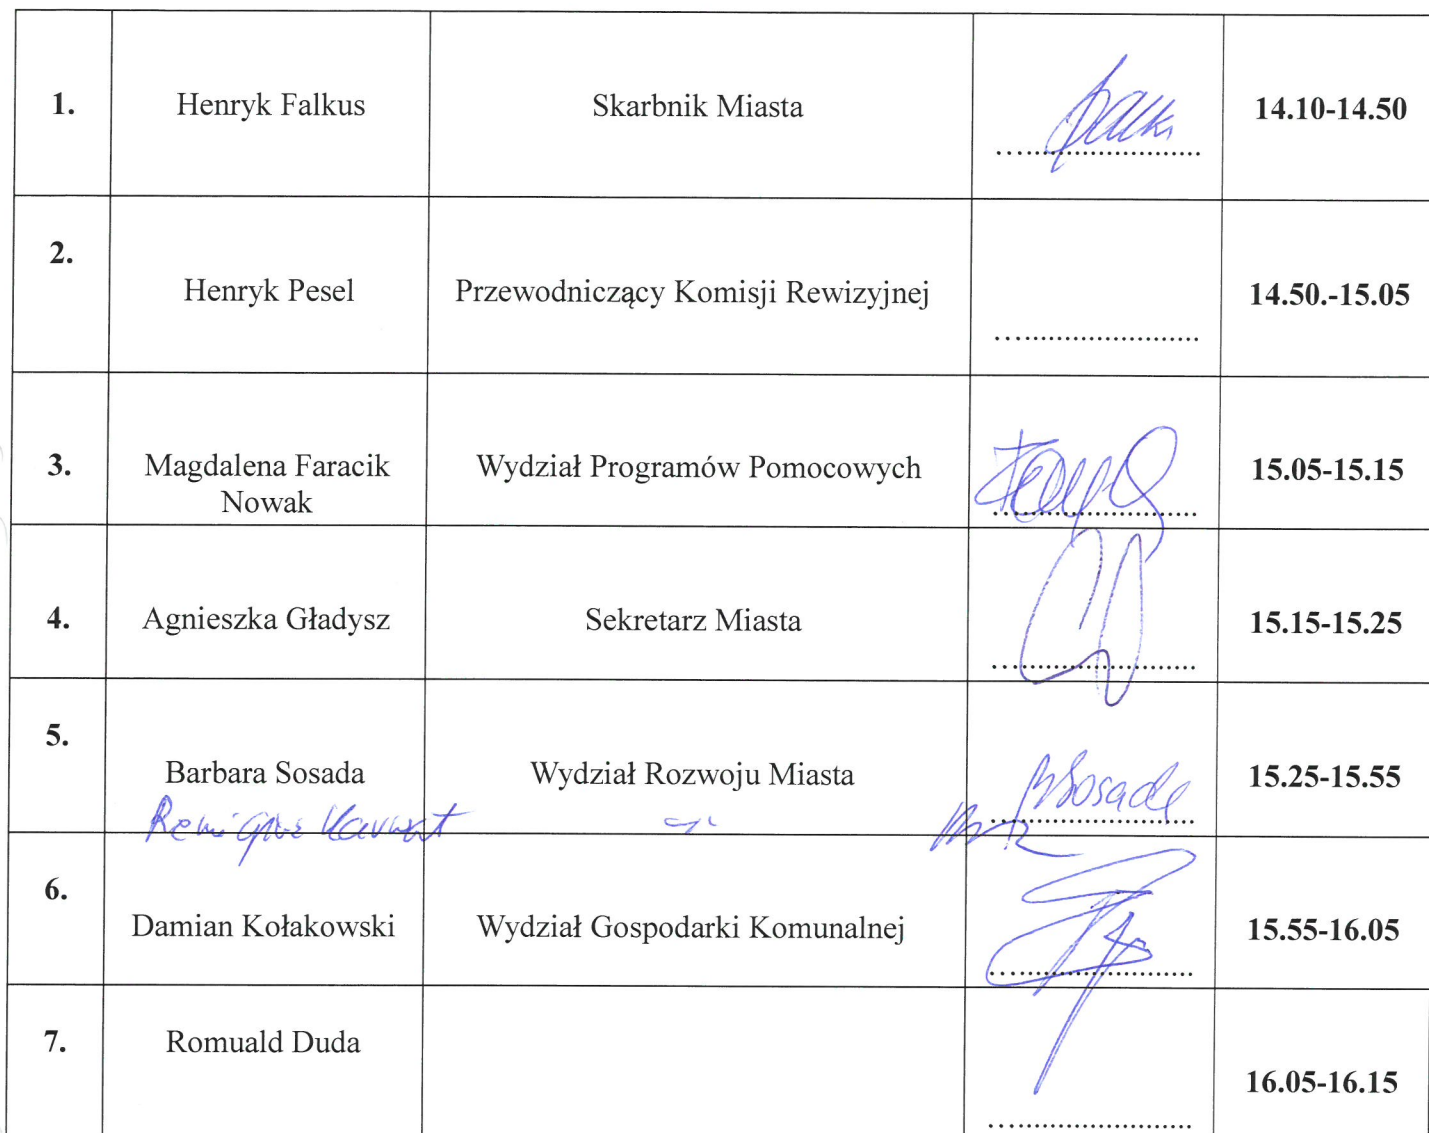 1.
Henryk Falkus
Skarbnik Miasta
14.10-14.50
2.
Henryk Pesel
Przewodniczący Komisji Rewizyjnej
14.50.-15.05
3.
Magdalena Faracik
Nowak
Wydział Programów Pomocowych
15.05-15.15
4.
Agnieszka Gładysz
Sekretarz Miasta
15.15-15.25
5.
Barbara Sosada
Wydział Rozwoju Miasta
BSosada
15.25-15.55
6.
Damian Kołakowski
Wydział Gospodarki Komunalnej
15.55-16.05
7.
Romuald Duda
16.05-16.15